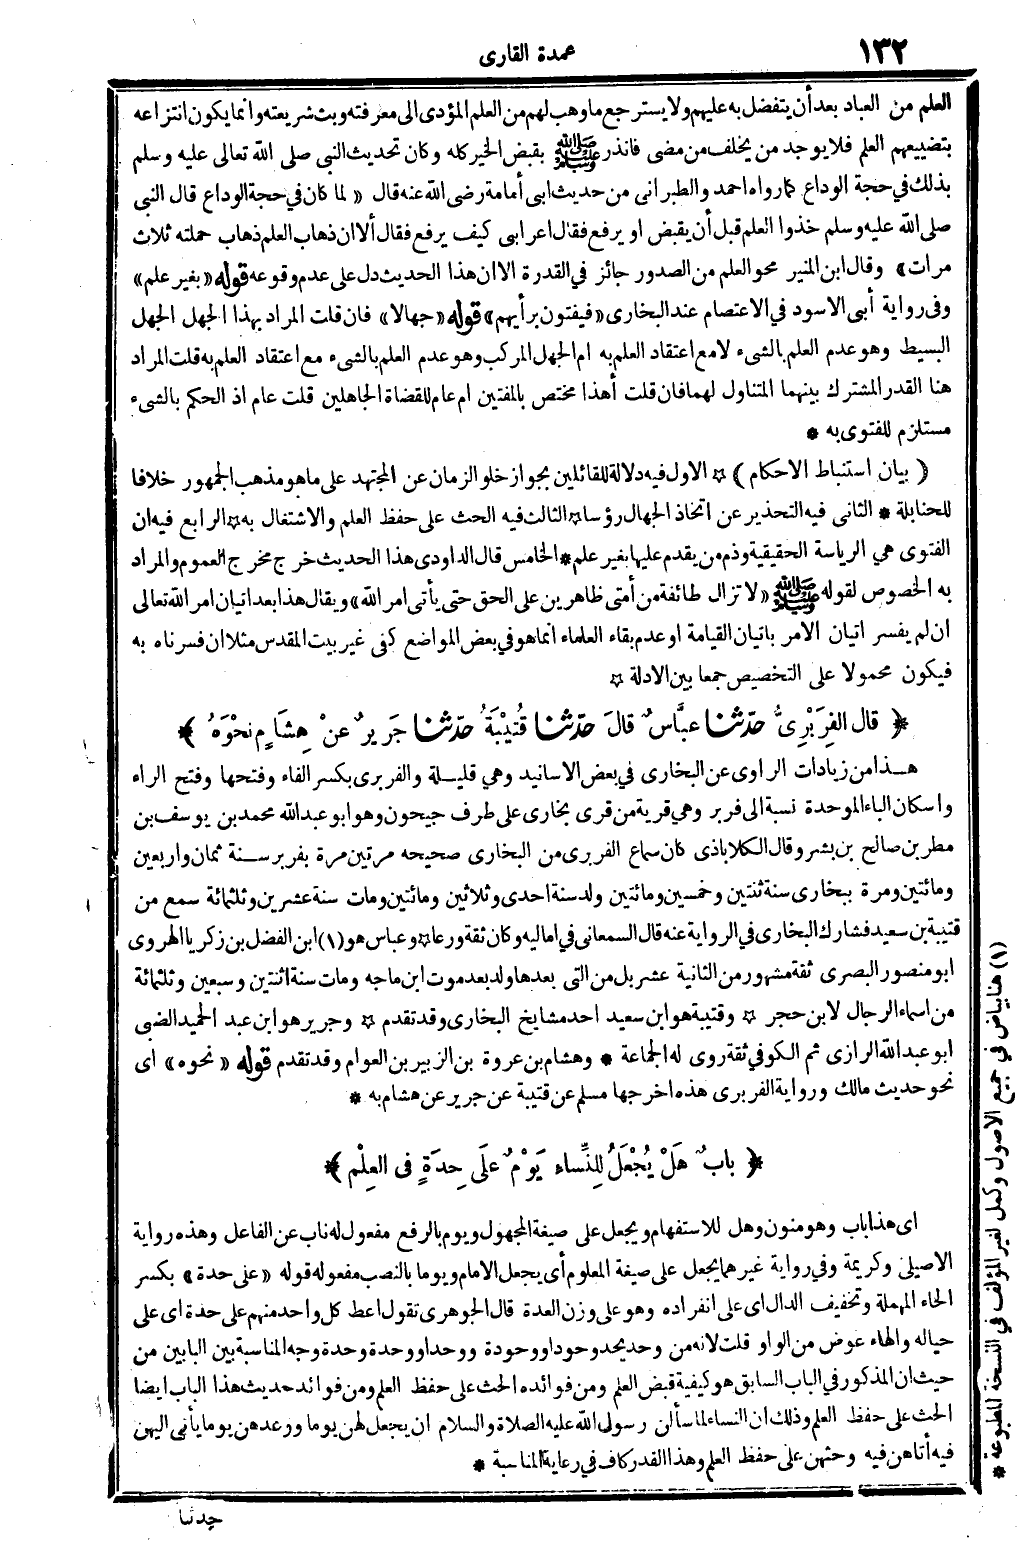 ١٣٢
عمدة القارى
العلم من العباد بعد أن يتفضل به عليهم ولا يسترجع ما وهب لهم من العلم المؤدى الى معرفته وبث شريعته وانما يكون انتزاعه
بتضييعهم العلم فلا يوجد من يخلف من مضى فانذر ﷺ بقبض الخير كله وكان تحديث النبي صلى الله تعالى عليه وسلم
بذلك في حجة الوداع كما رواه احمد والطبرانى من حديث ابى أمامة رضى الله عنه قال « لما كان في حجة الوداع قال النبى
صلى الله عليه وسلم خذوا العلم قبل أن يقبض او يرفع فقال اعرابى كيف يرفع فقال ألا ان ذهاب العلم ذهاب حملته ثلاث
مرات» وقال ابن المنير محو العلم من الصدور جائز في القدرة الا ان هذا الحديث دل على عدم وقوعه قوله «بغير علم»
وفى رواية أبى الاسود في الاعتصام عند البخارى «فيفتون برأيهم» قوله «جهالا» فان قلت المراد بهذا الجهل الجهل
البسيط وهو عدم العلم بالشىء لا مع اعتقاد العلم به ام الجهل المركب وهو عدم العلم بالشىء مع اعتقاد العلم به قلت المراد
هنا القدر المشترك بينهما المتناول لهما فان قلت أهذا مختص بالمفتين ام عام للقضاة الجاهلين قلت عام اذ الحكم بالشىء
مستلزم للفتوى به *
( بيان استنباط الاحكام ) ☆ الاول فيه دلالة للقائلين بجواز خلو الزمان عن المجتهد على ما هو مذهب الجمهور خلافا
للحنابلة * الثانى فيه التحذير عن اتخاذ الجهال رؤسا ☆ الثالث فيه الحث على حفظ العلم والاشتغال به ☆ الرابع فيه ان
الفتوى هي الرياسة الحقيقية وذم من يقدم عليها بغير علم * الخامس قال الداودى هذا الحديث خرج مخرج العموم والمراد
به الخصوص لقوله ﷺ «لا تزال طائفة من أمتى ظاهرين على الحق حتى يأتى امر الله» ويقال هذا بعد اتيان امر الله تعالى
ان لم يفسر اتيان الامر باتيان القيامة او عدم بقاء العلماء انما هو في بعض المواضع كفى غير بيت المقدس مثلا ان فسرناه به
فيكون محمولا على التخصيص جمعا بين الادلة ☆
﴿ قال الفِرَبْرِىُّ حدّثنا عبَّاسٌ قالَ حدّثنا قُتَيْبَةُ حدّثنا جَرِيرٌ عنْ هِشَامٍ نحْوَهُ ﴾
هـذا من زيادات الراوى عن البخارى في بعض الاسانيد وهي قليلة والفربرى بكسر الفاء وفتحها وفتح الراء
واسكان الباء الموحدة نسبة الى فربر وهي قرية من قرى بخارى على طرف جيحون وهو ابو عبد الله محمد بن يوسف بن
مطر بن صالح بن بشر وقال الكلاباذى كان سماع الفربرى من البخارى صحيحه مرتين مرة بفربر سنة ثمان واربعين
ومائتين ومرة ببخارى سنة ثنتين وخمسين ومائتين ولد سنة احدى وثلاثين ومائتين ومات سنة عشرين وثلثمائة سمع من
قتيبة بن سعيد فشارك البخارى في الرواية عنه قال السمعانى في اماليه وكان ثقة ورعا ☆ وعباس هو (١) ابن الفضل بن زكريا الهروى
ابو منصور البصرى ثقة مشهور من الثانية عشر بل من التى بعدها ولد بعد موت ابن ماجه ومات سنة اثنتين وسبعين وثلثمائة
من اسماء الرجال لابن حجر ☆ وقتيبة هو ابن سعيد احد مشايخ البخارى وقد تقدم ☆ وجرير هو ابن عبد الحميد الضبى
ابو عبد الله الرازى ثم الكوفي ثقة روى له الجماعة * وهشام بن عروة بن الزبير بن العوام وقد تقدم قوله « نحوه» اى
نحو حديث مالك ورواية الفربرى هذه اخرجها مسلم عن قتيبة عن جرير عن هشام به *
﴿ بابٌ هَلْ يُجْعَلُ لِلنِّساءِ يَوْمٌ عَلَى حِدَةٍ فى العِلْمِ ﴾
اى هذا باب وهو منون وهل للاستفهام ويجعل على صيغة المجهول ويوم بالرفع مفعول له ناب عن الفاعل وهذه رواية
الاصيلى وكريمة وفي رواية غيرهما يجعل على صيغة المعلوم أى يجعل الامام ويوما بالنصب مفعوله قوله «على حدة» بكسر
الحاء المهملة وتخفيف الدال اى على انفراده وهو على وزن العدة قال الجوهرى تقول اعط كل واحد منهم على حدة اى على
حياله والهاء عوض من الواو قلت لانه من وحد يحد وحودا ووحودة ووحدا ووحدة وحدة وجه المناسبة بين البابين من
حيث ان المذكور في الباب السابق هو كيفية قبض العلم ومن فوائده الحث على حفظ العلم ومن فوائد حديث هذا الباب ايضا
الحث على حفظ العلم وذلك ان النساء لما سألن رسول الله عليه الصلاة والسلام ان يجعل لهن يوما ووعدهن يوما يأتى اليهن
فيه أتاهن فيه وحثهن على حفظ العلم وهذا القدر كاف في رعاية المناسبة *
(١) هنا بياض في جميع الاصول وكمل لغير المؤلف في النسخة المطبوعة *
حدثنا